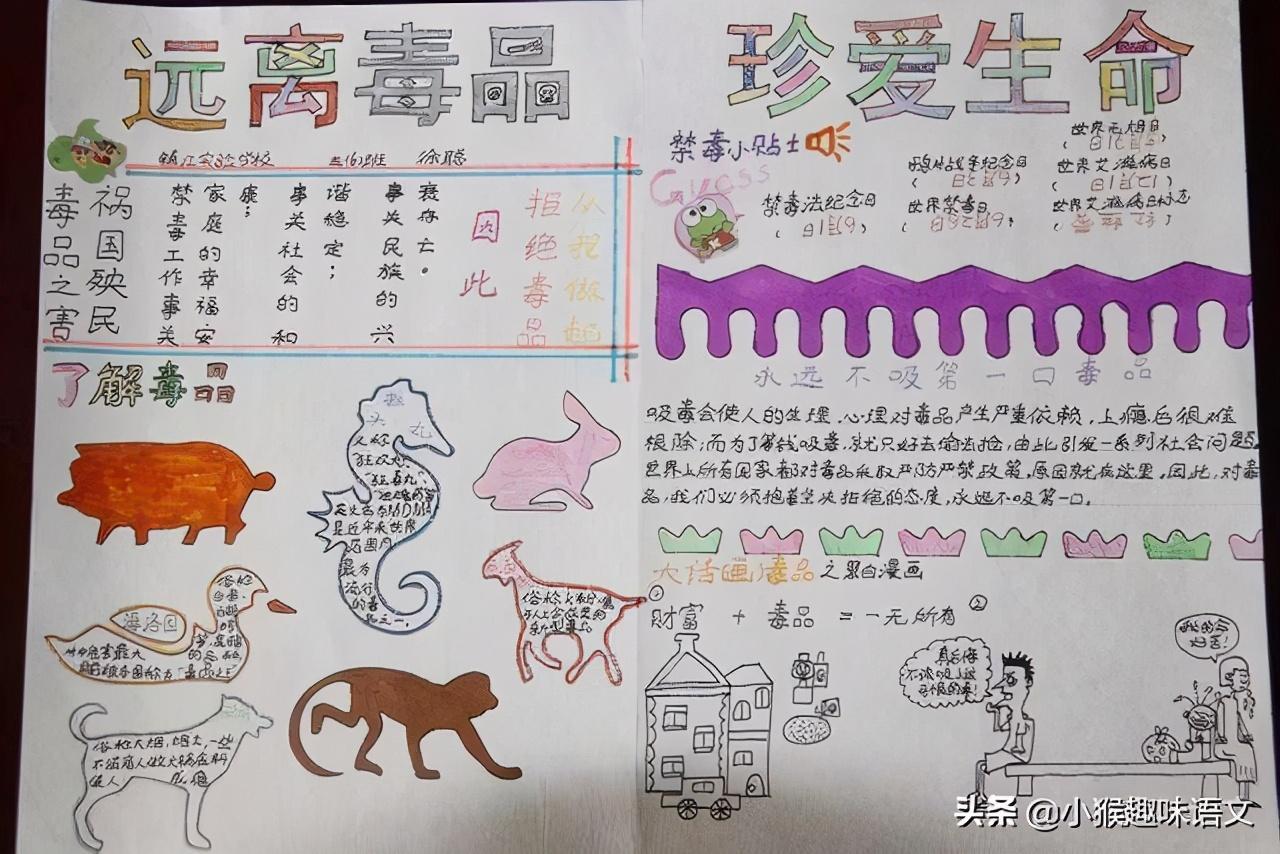 远离毒品
珍爱生命
镇江实验学校
徐聪
毒品之害
祸国殃民
禁毒工作事关
家庭的幸福安
康;
事关社会的和
谐稳定;
事关民族的兴
衰存亡。
因此
拒绝毒品
从我做起
禁毒小贴士
Guess
禁毒法纪念日
世界禁毒日
世界无烟日
世界艾滋病日
了解毒品
摇头丸
又称
狂欢丸
是近年来世界
范围内
最为
流行
的毒
品之一,
海洛因
俗称大烟,烟土,一些
永远不吸第一口毒品
吸毒会使人的生理、心理对毒品产生严重依赖,上瘾后很难
根除;而为了筹钱吸毒,就只好去偷去抢,由此引发一系列社会问题,
世界上所有国家都对毒品采取严防严禁政策,原因就在这里。因此,对毒
品,我们必须抱着坚决拒绝的态度,永远不吸第一口。
大话画毒品之黑白漫画
①
财富 + 毒品 = 一无所有
②
真后悔
不该吸上这
可恨的毒!
我的命
好苦!
头条 @小猴趣味语文